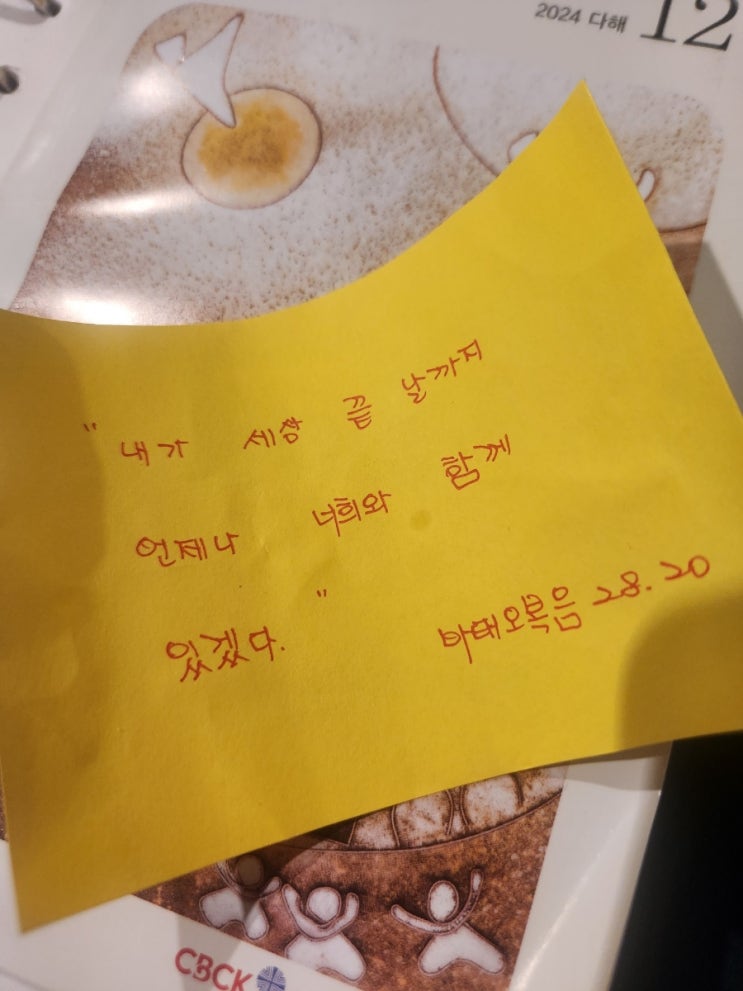 2024 다해 12
"내가 세상 끝 날까지
언제나 너희와 함께
있겠다."
마태오복음 28.20
CBCK